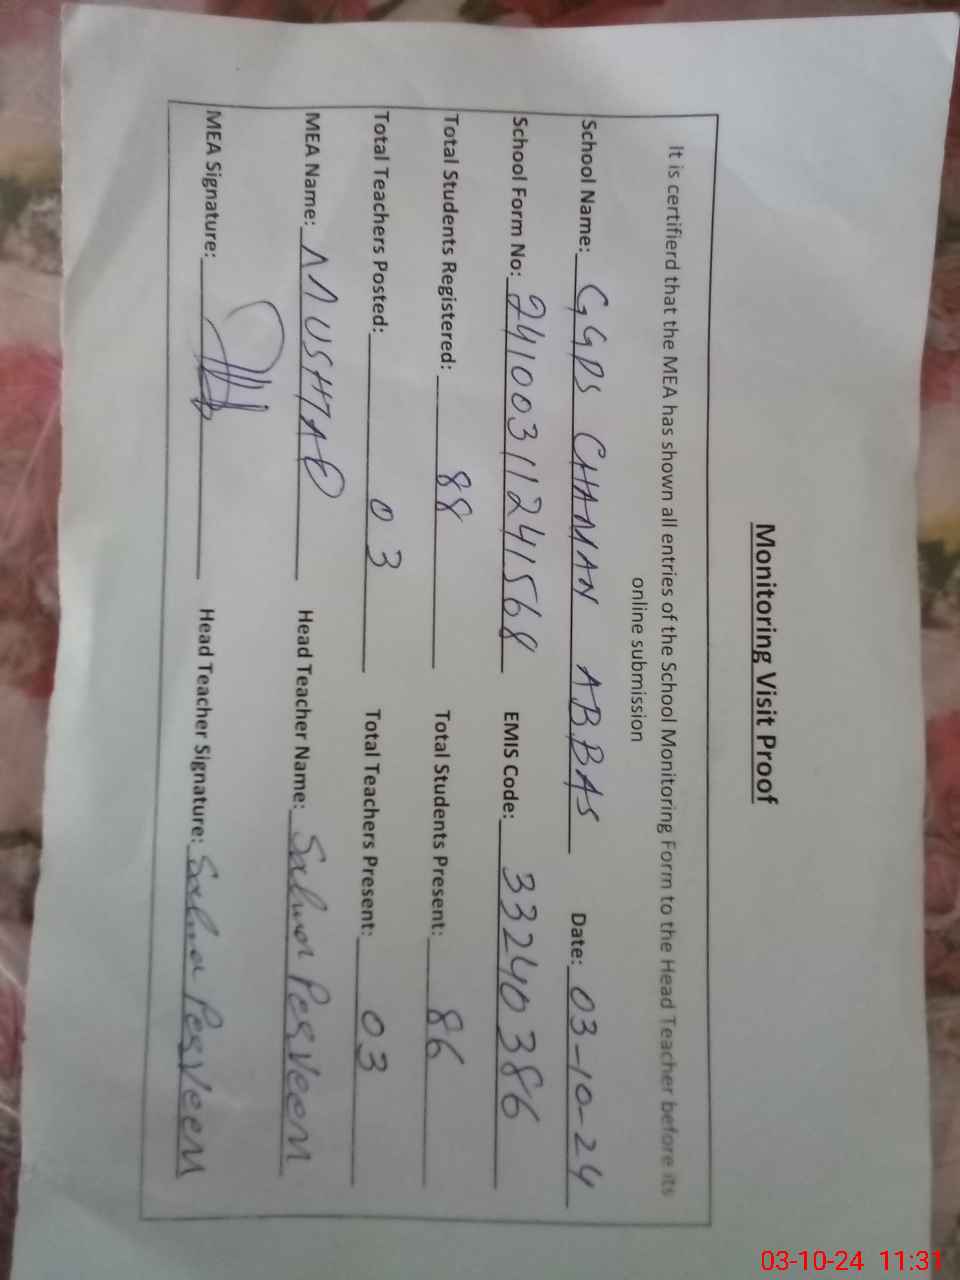 Monitoring Visit Proof
It is certifierd that the MEA has shown all entries of the School Monitoring Form to the Head Teacher before its
online submission
School Name: GGPS CHAMAN ABBAS Date: 03-10-24
School Form No: 24100311241568 EMIS Code: 33240386
Total Students Registered: 88 Total Students Present: 86
Total Teachers Posted: 03 Total Teachers Present: 03
MEA Name: MUSHTAQ Head Teacher Name: Salma Perveen
MEA Signature: Head Teacher Signature: Salma Perveen
03-10-24 11:31